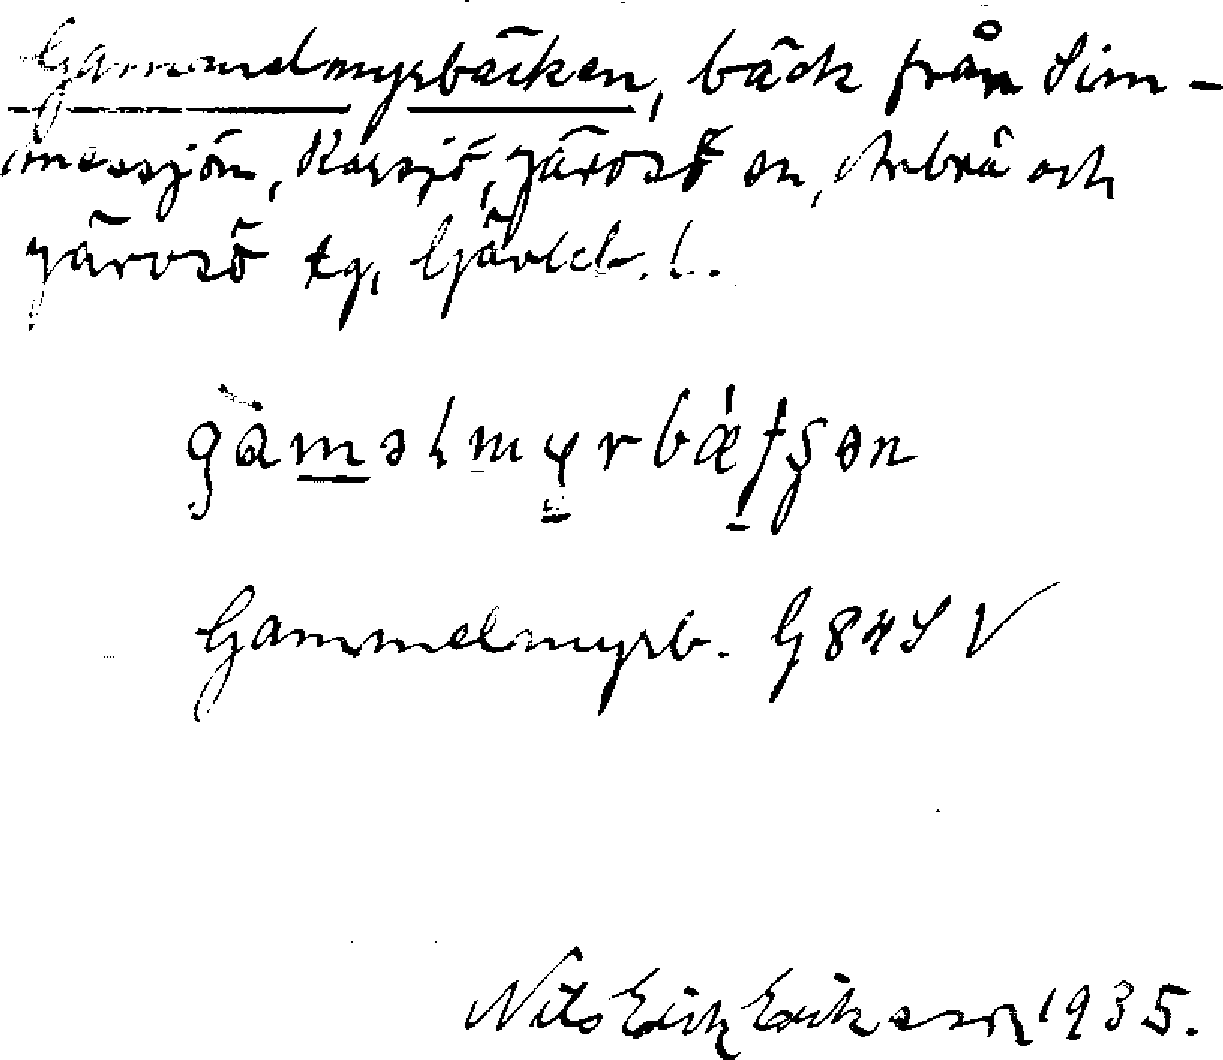 Gammelmyrbäcken, bäck från Sim-
messjön, Karsjö, Järvsö sn, Arbrå och
Järvsö tg, Gävleb. l.
Gammelmyrb. G 84 S V
Nils Erik Eriksson 1935.